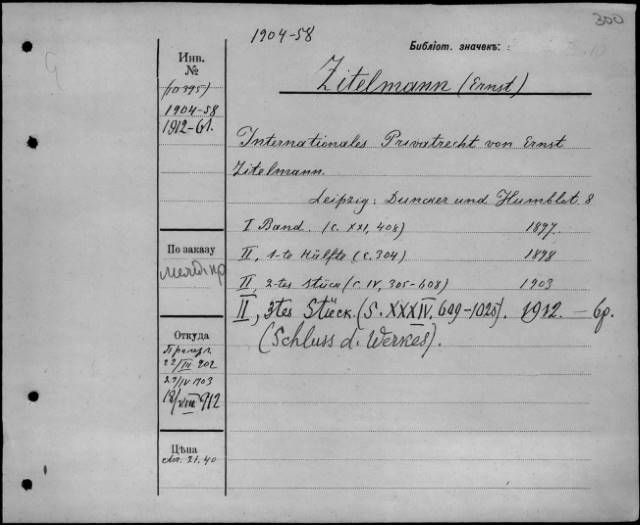 300
1904-58
Библіот. значекъ:
Zitelmann (Ernst)
Инв.
№
(10395)
1904-58
1912-61.
Internationales Privatrecht von Ernst
Zitelmann.
Leipzig: Duncker und Humblot. 8
I Band. (С. XXI, 408) 1897.
II, 1-te Hälfte (С. 304) 1898
II, 2-tes Stück (С. IV, 305-608) 1903
II, 3tes Stück. (S. XXXIV, 609-1025). 1912. — 6р.
(Schluss d. Werkes).
По заказу
Откуда
22/III 902
29/IV 903
18/VIII 912
Цѣна
21.40